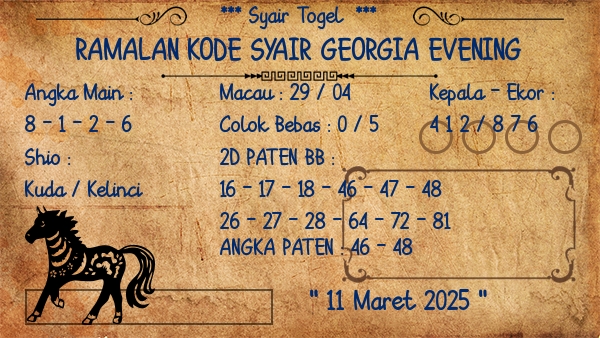 *** Syair Togel ***
RAMALAN KODE SYAIR GEORGIA EVENING
Angka Main :
8 - 1 - 2 - 6
Shio :
Kuda / Kelinci
Macau : 29 / 04
Colok Bebas : 0 / 5
2D PATEN BB :
16 - 17 - 18 - 46 - 47 - 48
26 - 27 - 28 - 64 - 72 - 81
ANGKA PATEN : 46 - 48
Kepala - Ekor :
4 1 2 / 8 7 6
" 11 Maret 2025 "